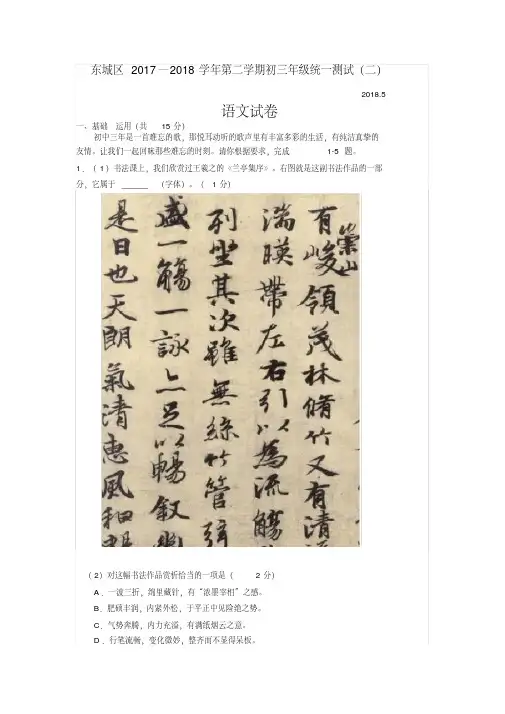 东城区 2017—2018 学年第二学期初三年级统一测试（二）
2018.5
语文试卷
一、基础 运用（共 15 分）
初中三年是一首难忘的歌，那悦耳动听的歌声里有丰富多彩的生活，有纯洁真挚的
友情。让我们一起回味那些难忘的时刻。请你根据要求，完成 1-5 题。
1．（ 1）书法课上，我们欣赏过王羲之的《兰亭集序》。右图就是这副书法作品的一部
分，它属于 ______ (字体) 。（ 1 分）
有崇山峻領茂林脩竹又有清
湍暎帶左右引以為流觴
列坐其次雖無絲竹管弦
盛一觴一詠亦足以暢叙
是日也天朗氣清惠風和
（ 2）对这幅书法作品赏析恰当的一项是（ 2 分）
A．一波三折，绵里藏针，有“浓墨宰相”之感。
B．肥硕丰润，内紧外松，于平正中见险绝之势。
C．气势奔腾，内力充溢，有满纸烟云之意。
D．行笔流畅，变化微妙，整齐而不显得呆板。